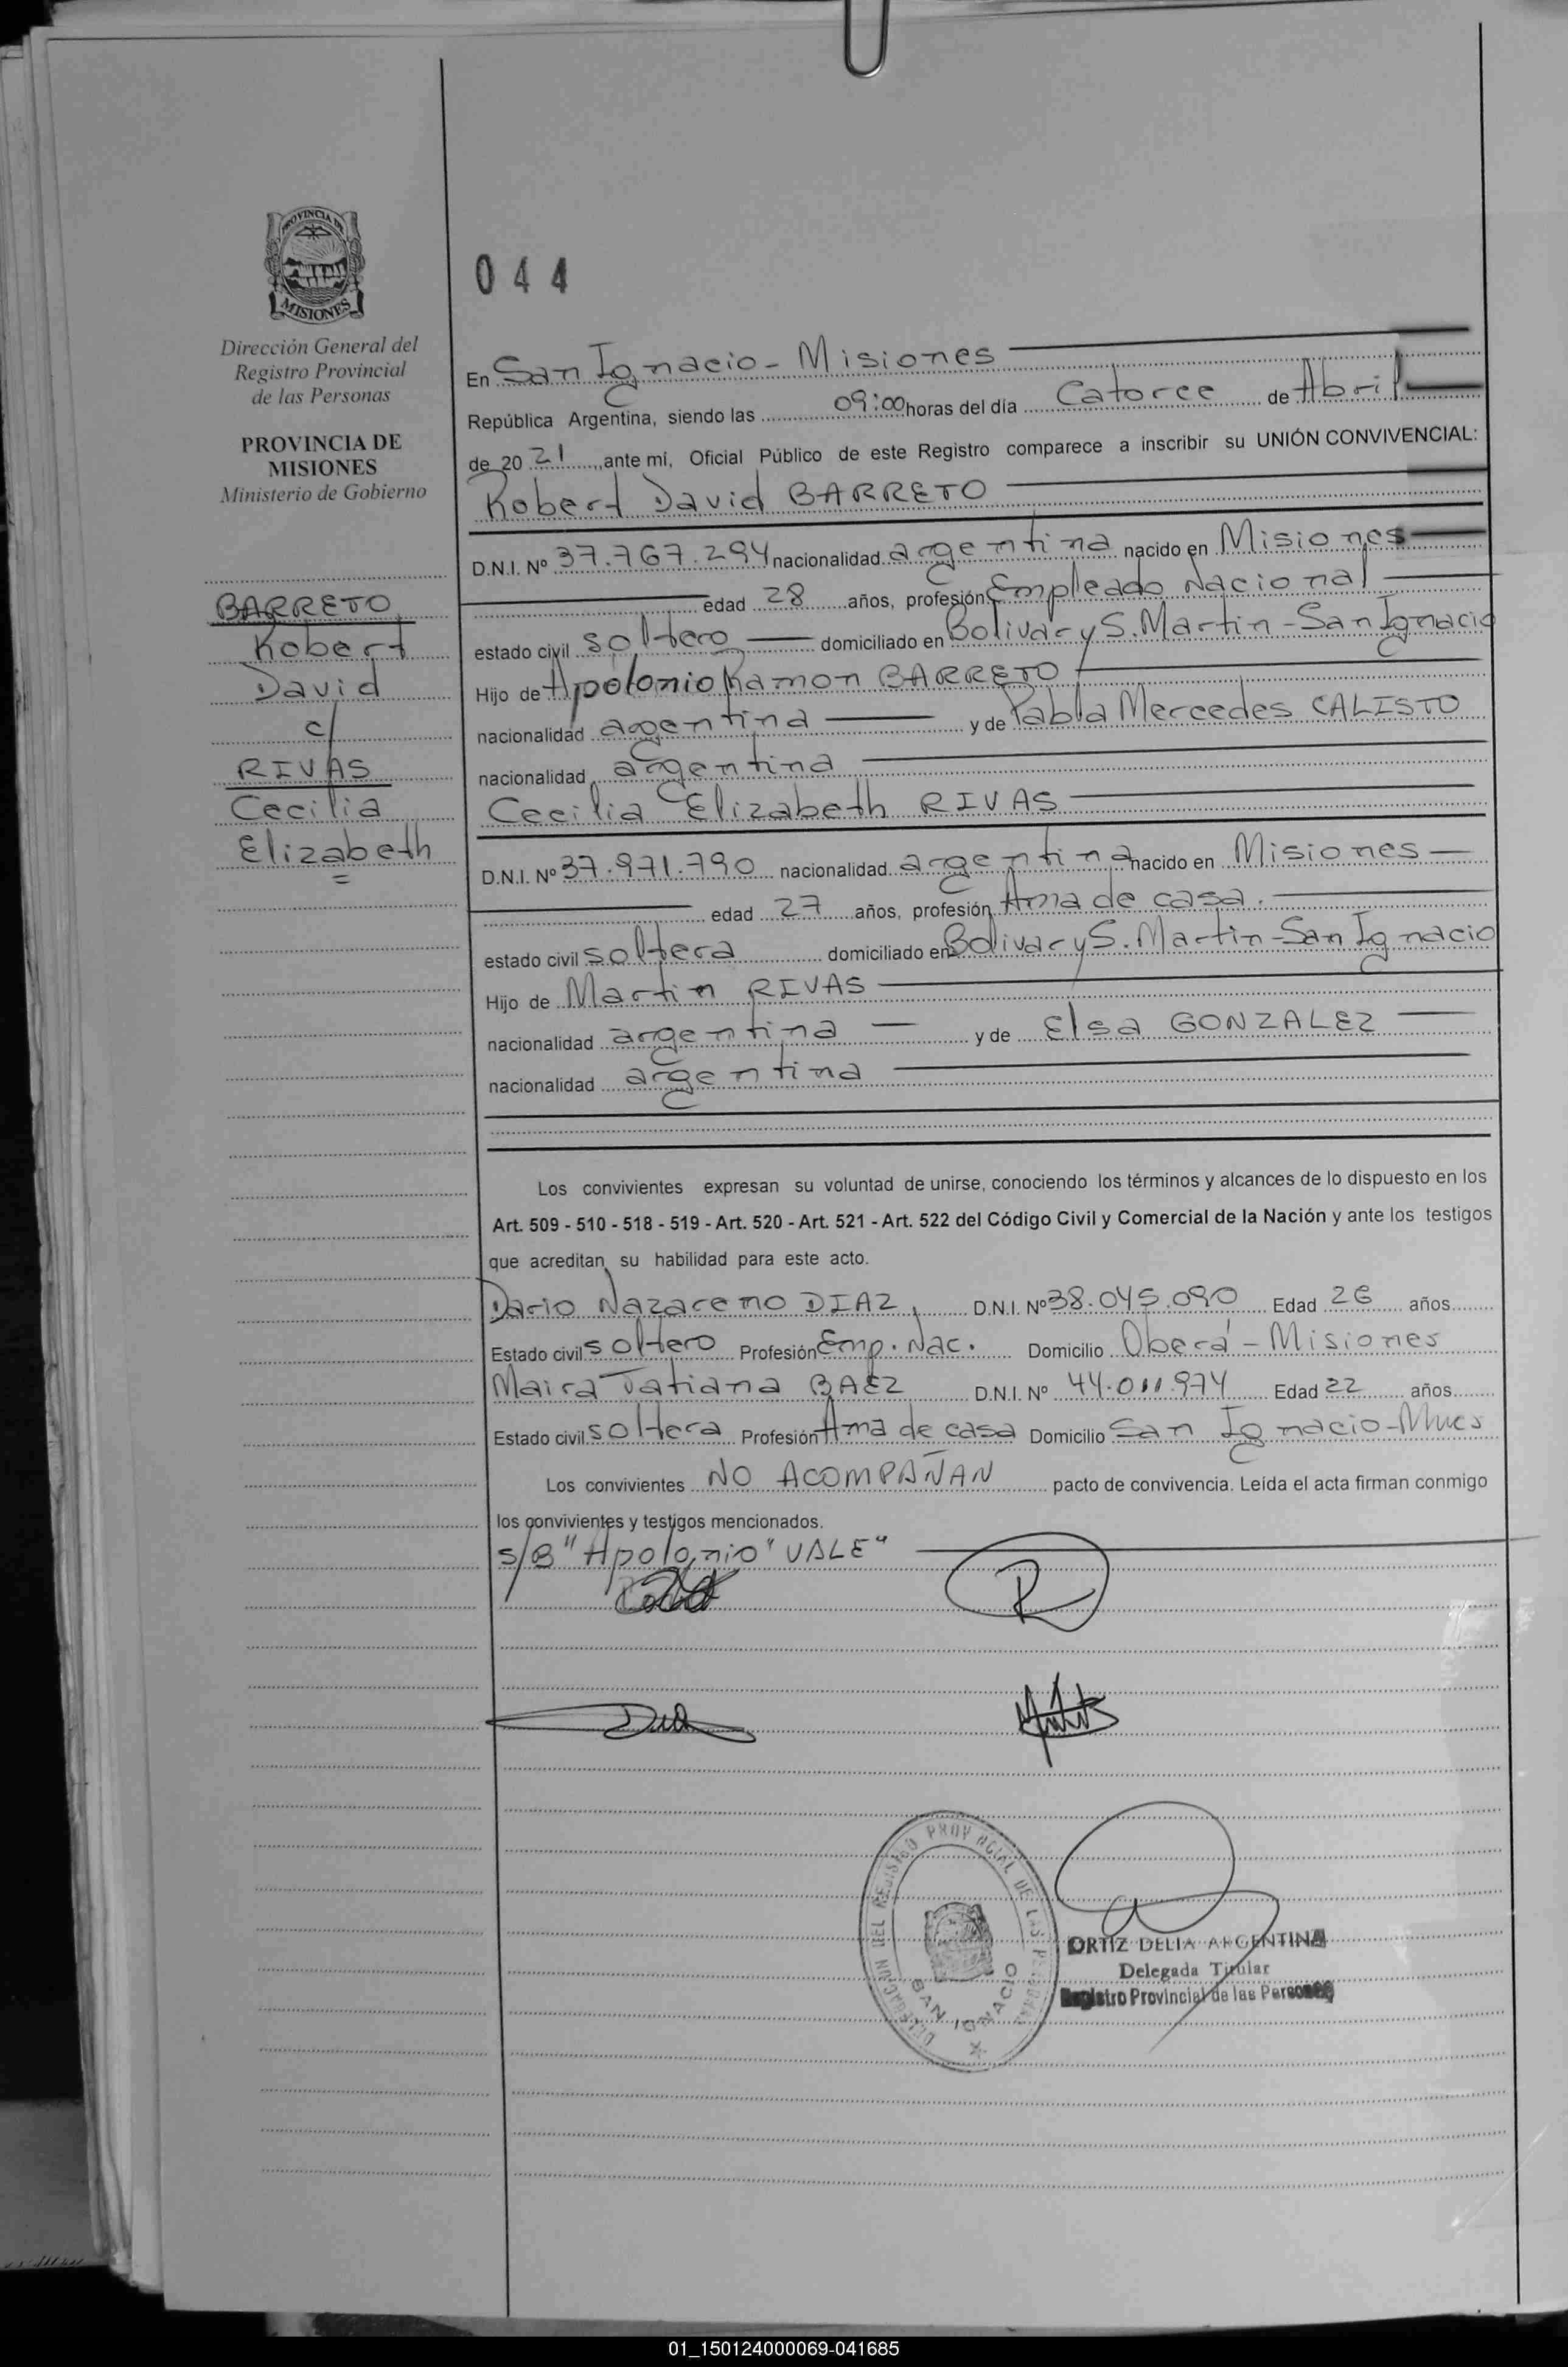 PROVINCIA DE
MISIONES
Dirección General del
Registro Provincial
de las Personas
PROVINCIA DE
MISIONES
Ministerio de Gobierno
BARRETO
Robert
David
c/
RIVAS
Cecilia
Elizabeth
=
044
En San Ignacio - Misiones
República Argentina, siendo las 09:00 horas del día Catorce de Abril
de 20 21, ante mí, Oficial Público de este Registro comparece a inscribir su UNIÓN CONVIVENCIAL:
Robert David BARRETO
D.N.I. Nº 37.767.294 nacionalidad argentina nacido en Misiones
edad 28 años, profesión Empleado Nacional
estado civil soltero domiciliado en Bolivar y S. Martin - San Ignacio
Hijo de Apolonio Ramon BARRETO
nacionalidad argentina y de Pabla Mercedes CALISTO
nacionalidad argentina
Cecilia Elizabeth RIVAS
D.N.I. Nº 37.971.790 nacionalidad argentina nacido en Misiones
edad 27 años, profesión Ama de casa.
estado civil soltera domiciliado en Bolivar y S. Martin - San Ignacio
Hijo de Martin RIVAS
nacionalidad argentina y de Elsa GONZALEZ
nacionalidad argentina
Los convivientes expresan su voluntad de unirse, conociendo los términos y alcances de lo dispuesto en los
Art. 509 - 510 - 518 - 519 - Art. 520 - Art. 521 - Art. 522 del Código Civil y Comercial de la Nación y ante los testigos
que acreditan su habilidad para este acto.
Dario Nazareno DIAZ, D.N.I. Nº 38.045.090 Edad 26 años
Estado civil soltero Profesión Emp. Nac. Domicilio Oberá - Misiones
Maira Tatiana BAEZ D.N.I. Nº 44.011.974 Edad 22 años
Estado civil soltera Profesión Ama de casa Domicilio San Ignacio - Mnes
Los convivientes NO ACOMPAÑAN pacto de convivencia. Leída el acta firman conmigo
los convivientes y testigos mencionados.
S/B "Apolonio" VALE"
DELEGACION DEL REGISTRO PROVINCIAL DE LAS PERSONAS
SAN IGNACIO
ORTIZ DELIA ARGENTINA
Delegada Titular
Registro Provincial de las Personas
01_150124000069-041685